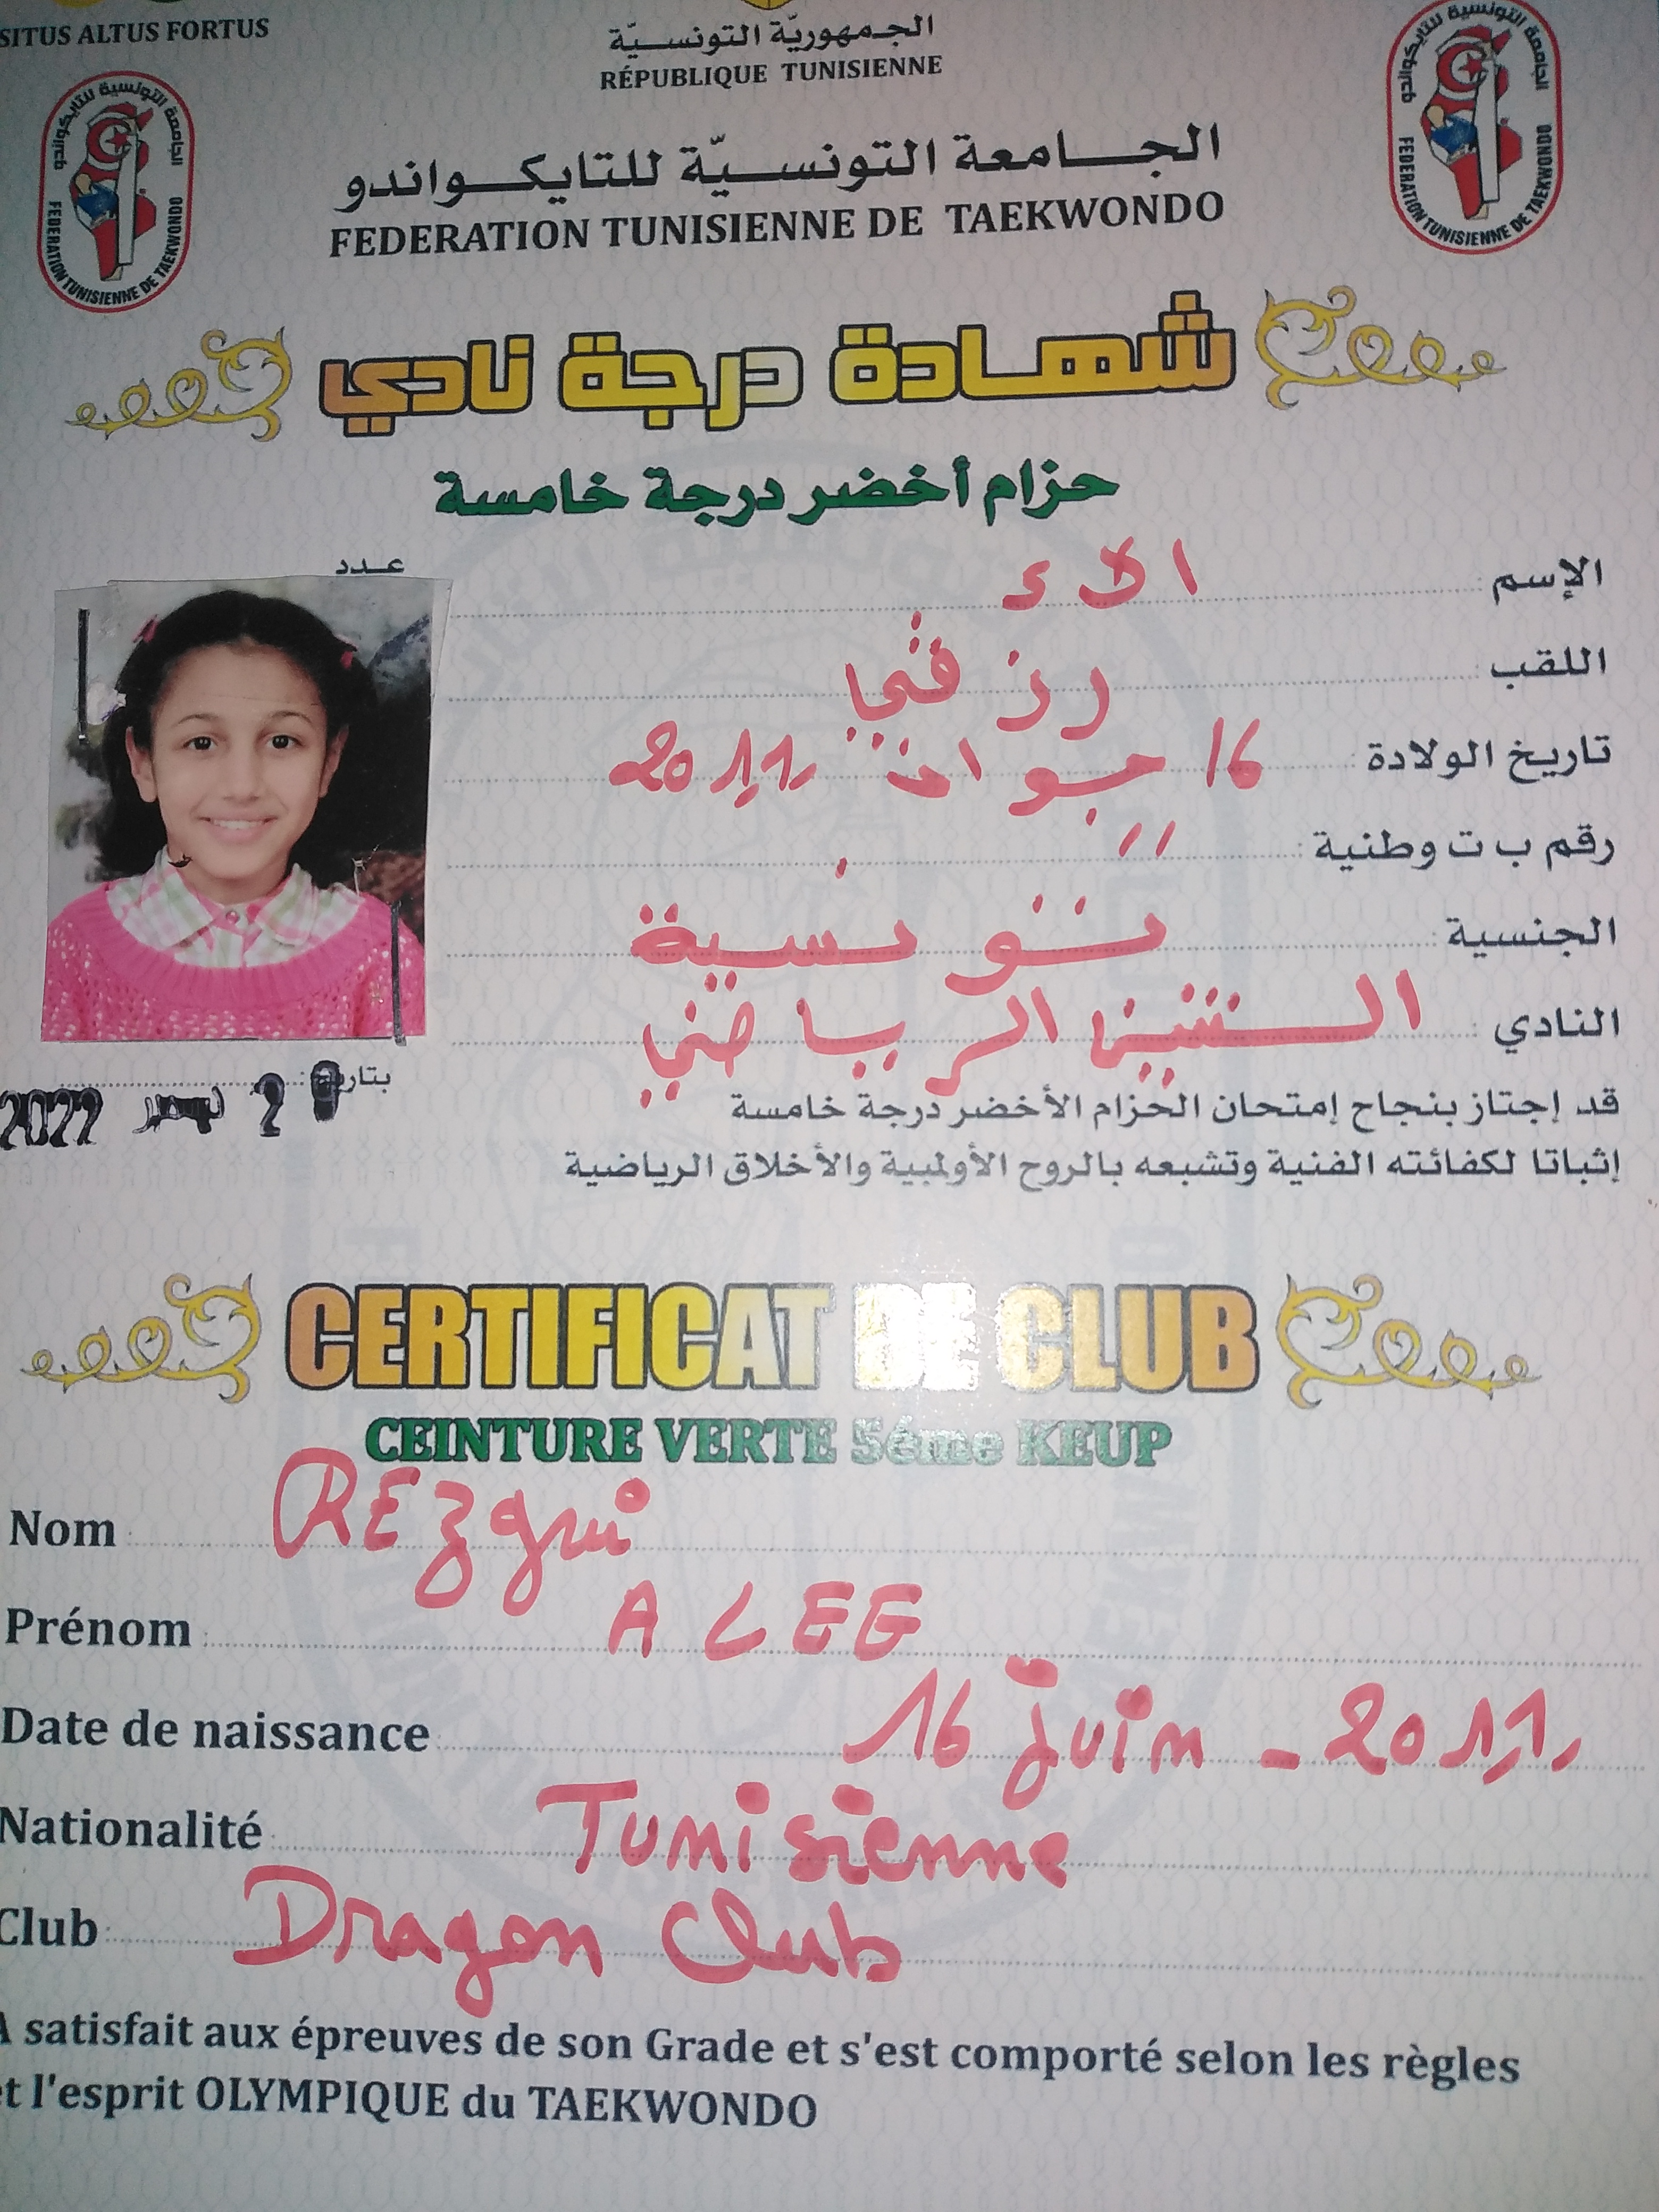 SITUS ALTUS FORTUS
الجمهوريّة التونسيّة
RÉPUBLIQUE TUNISIENNE
الجامعة التونسية للتايكواندو
FEDERATION TUNISIENNE DE TAEKWONDO
الجامعة التونسية للتايكواندو
FEDERATION TUNISIENNE DE TAEKWONDO
الجامعة التونسيّة للتايكواندو
FEDERATION TUNISIENNE DE TAEKWONDO
شهادة درجة نادي
حزام أخضر درجة خامسة
عدد
الإسم : الاء
اللقب : رزقي
تاريخ الولادة : 16 جوان 2011
رقم ب ت وطنية :
الجنسية : تونسية
النادي : التنين الرياضي
بتاريخ : 2022
قد إجتاز بنجاح إمتحان الحزام الأخضر درجة خامسة
إثباتا لكفائته الفنية وتشبعه بالروح الأولمبية والأخلاق الرياضية
CERTIFICAT DE CLUB
CEINTURE VERTE 5éme KEUP
Nom : REzgui
Prénom : ALEE
Date de naissance : 16 juin - 2011
Nationalité : Tunisienne
Club : Dragon Club
A satisfait aux épreuves de son Grade et s'est comporté selon les règles
et l'esprit OLYMPIQUE du TAEKWONDO